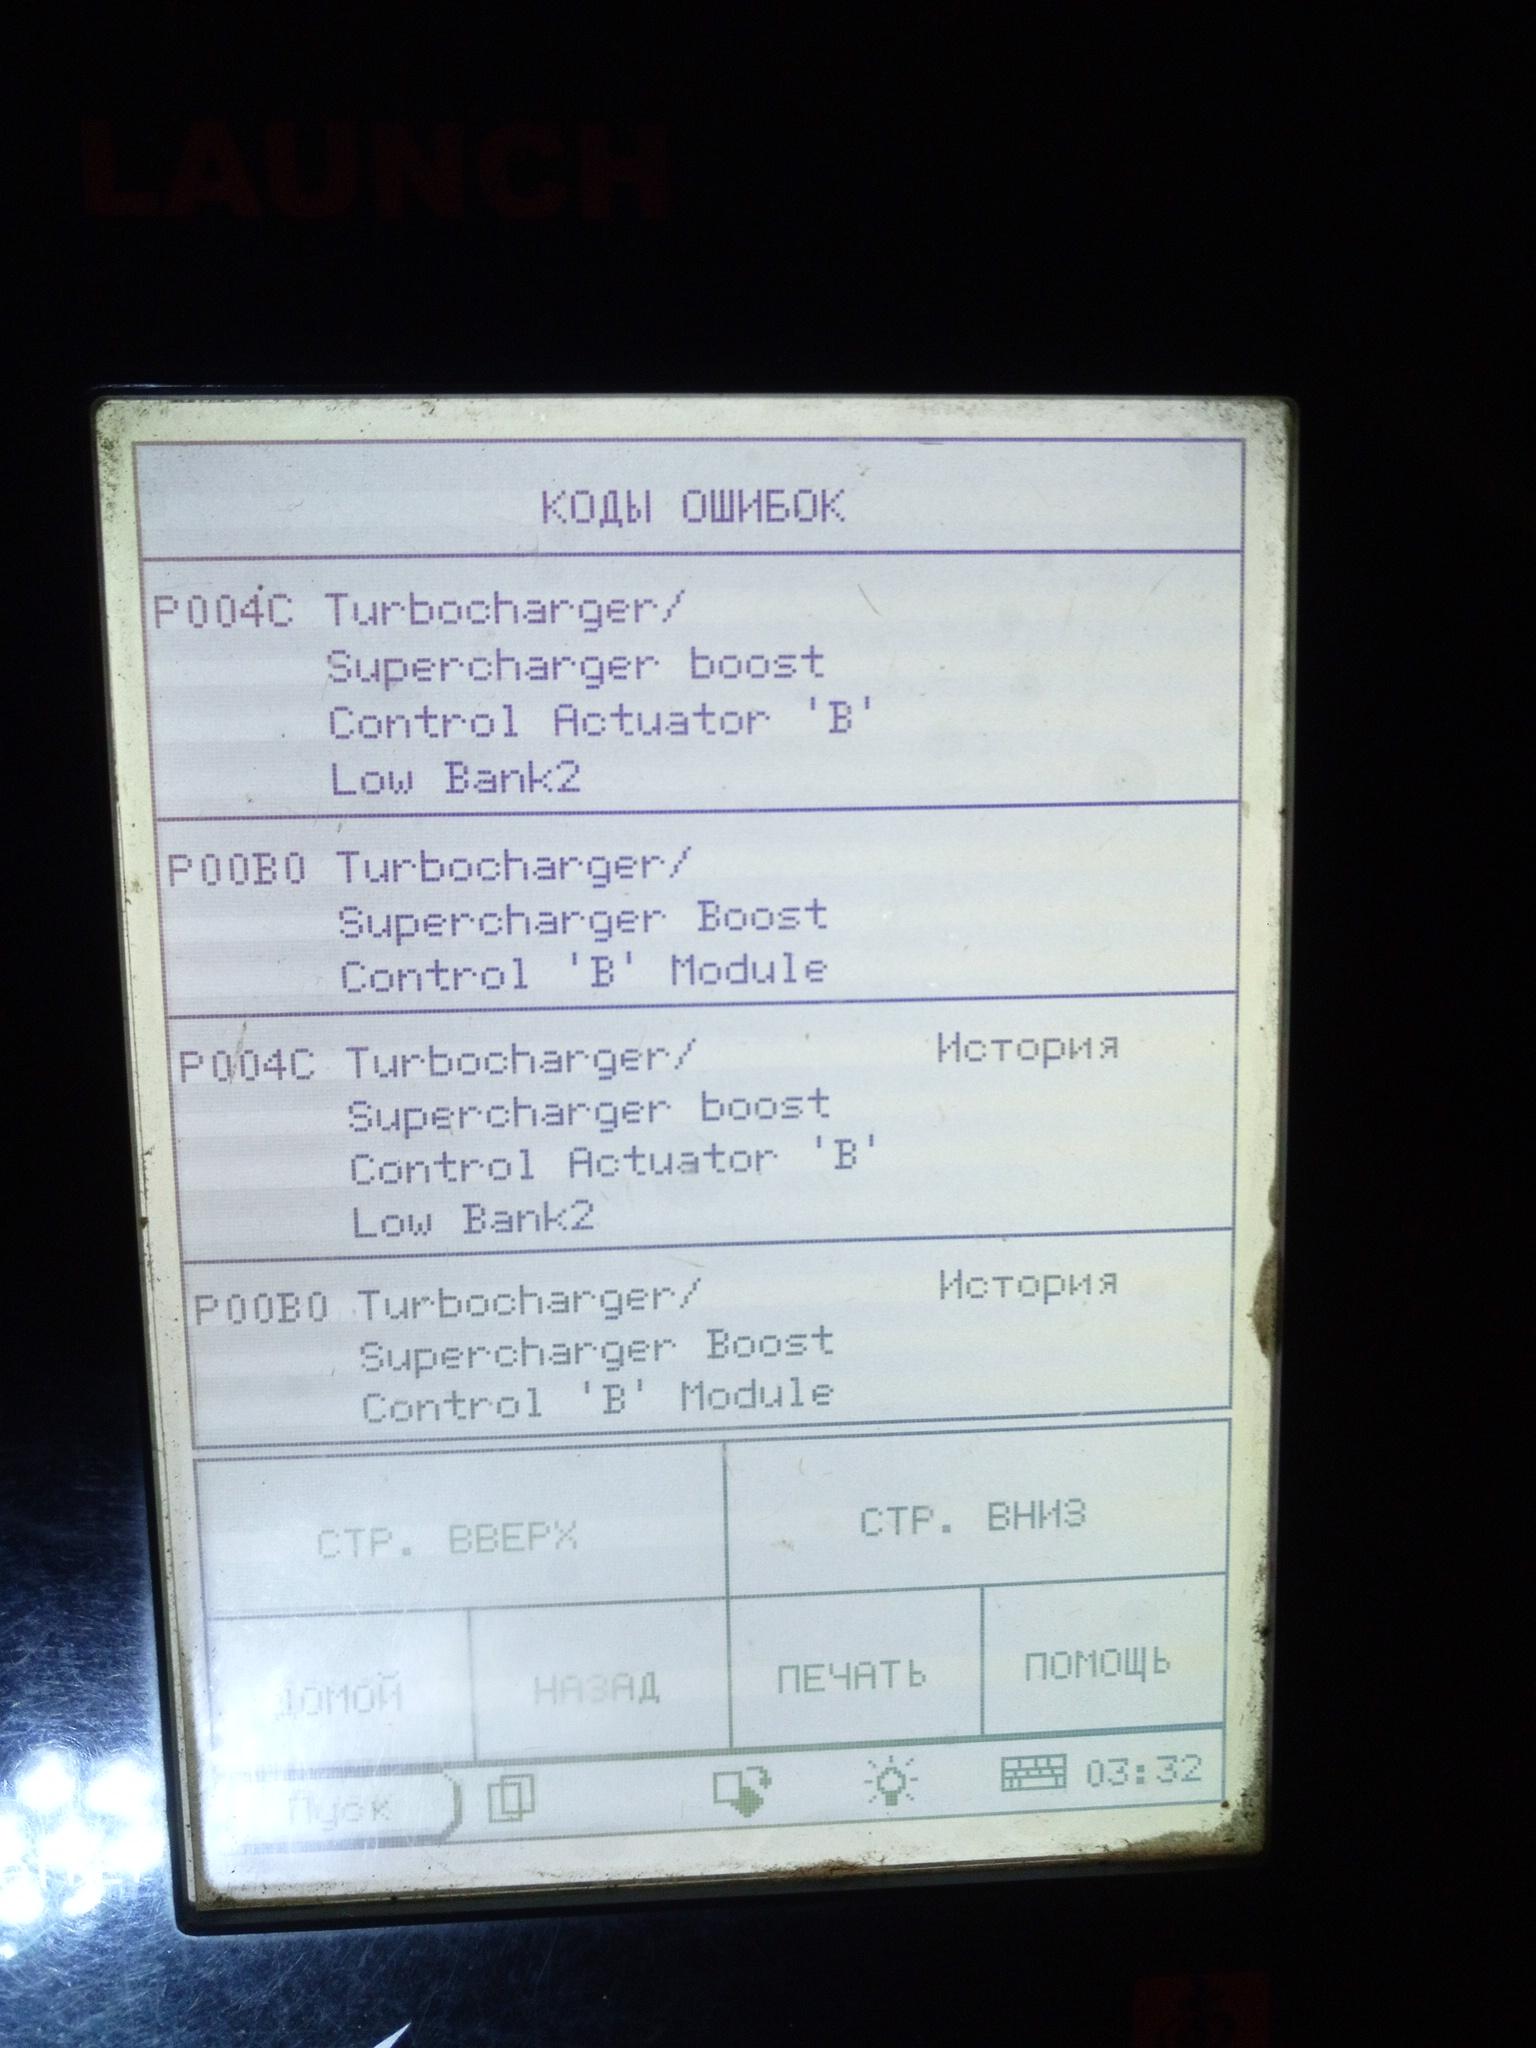 LAUNCH
КОДЫ ОШИБОК
P004C Turbocharger/
Supercharger boost
Control Actuator 'B'
Low Bank2
P00B0 Turbocharger/
Supercharger Boost
Control 'B' Module
P004C Turbocharger/ История
Supercharger boost
Control Actuator 'B'
Low Bank2
P00B0 Turbocharger/ История
Supercharger Boost
Control 'B' Module
СТР. ВВЕРХ СТР. ВНИЗ
ДОМОЙ НАЗАД ПЕЧАТЬ ПОМОЩЬ
Пуск 03:32